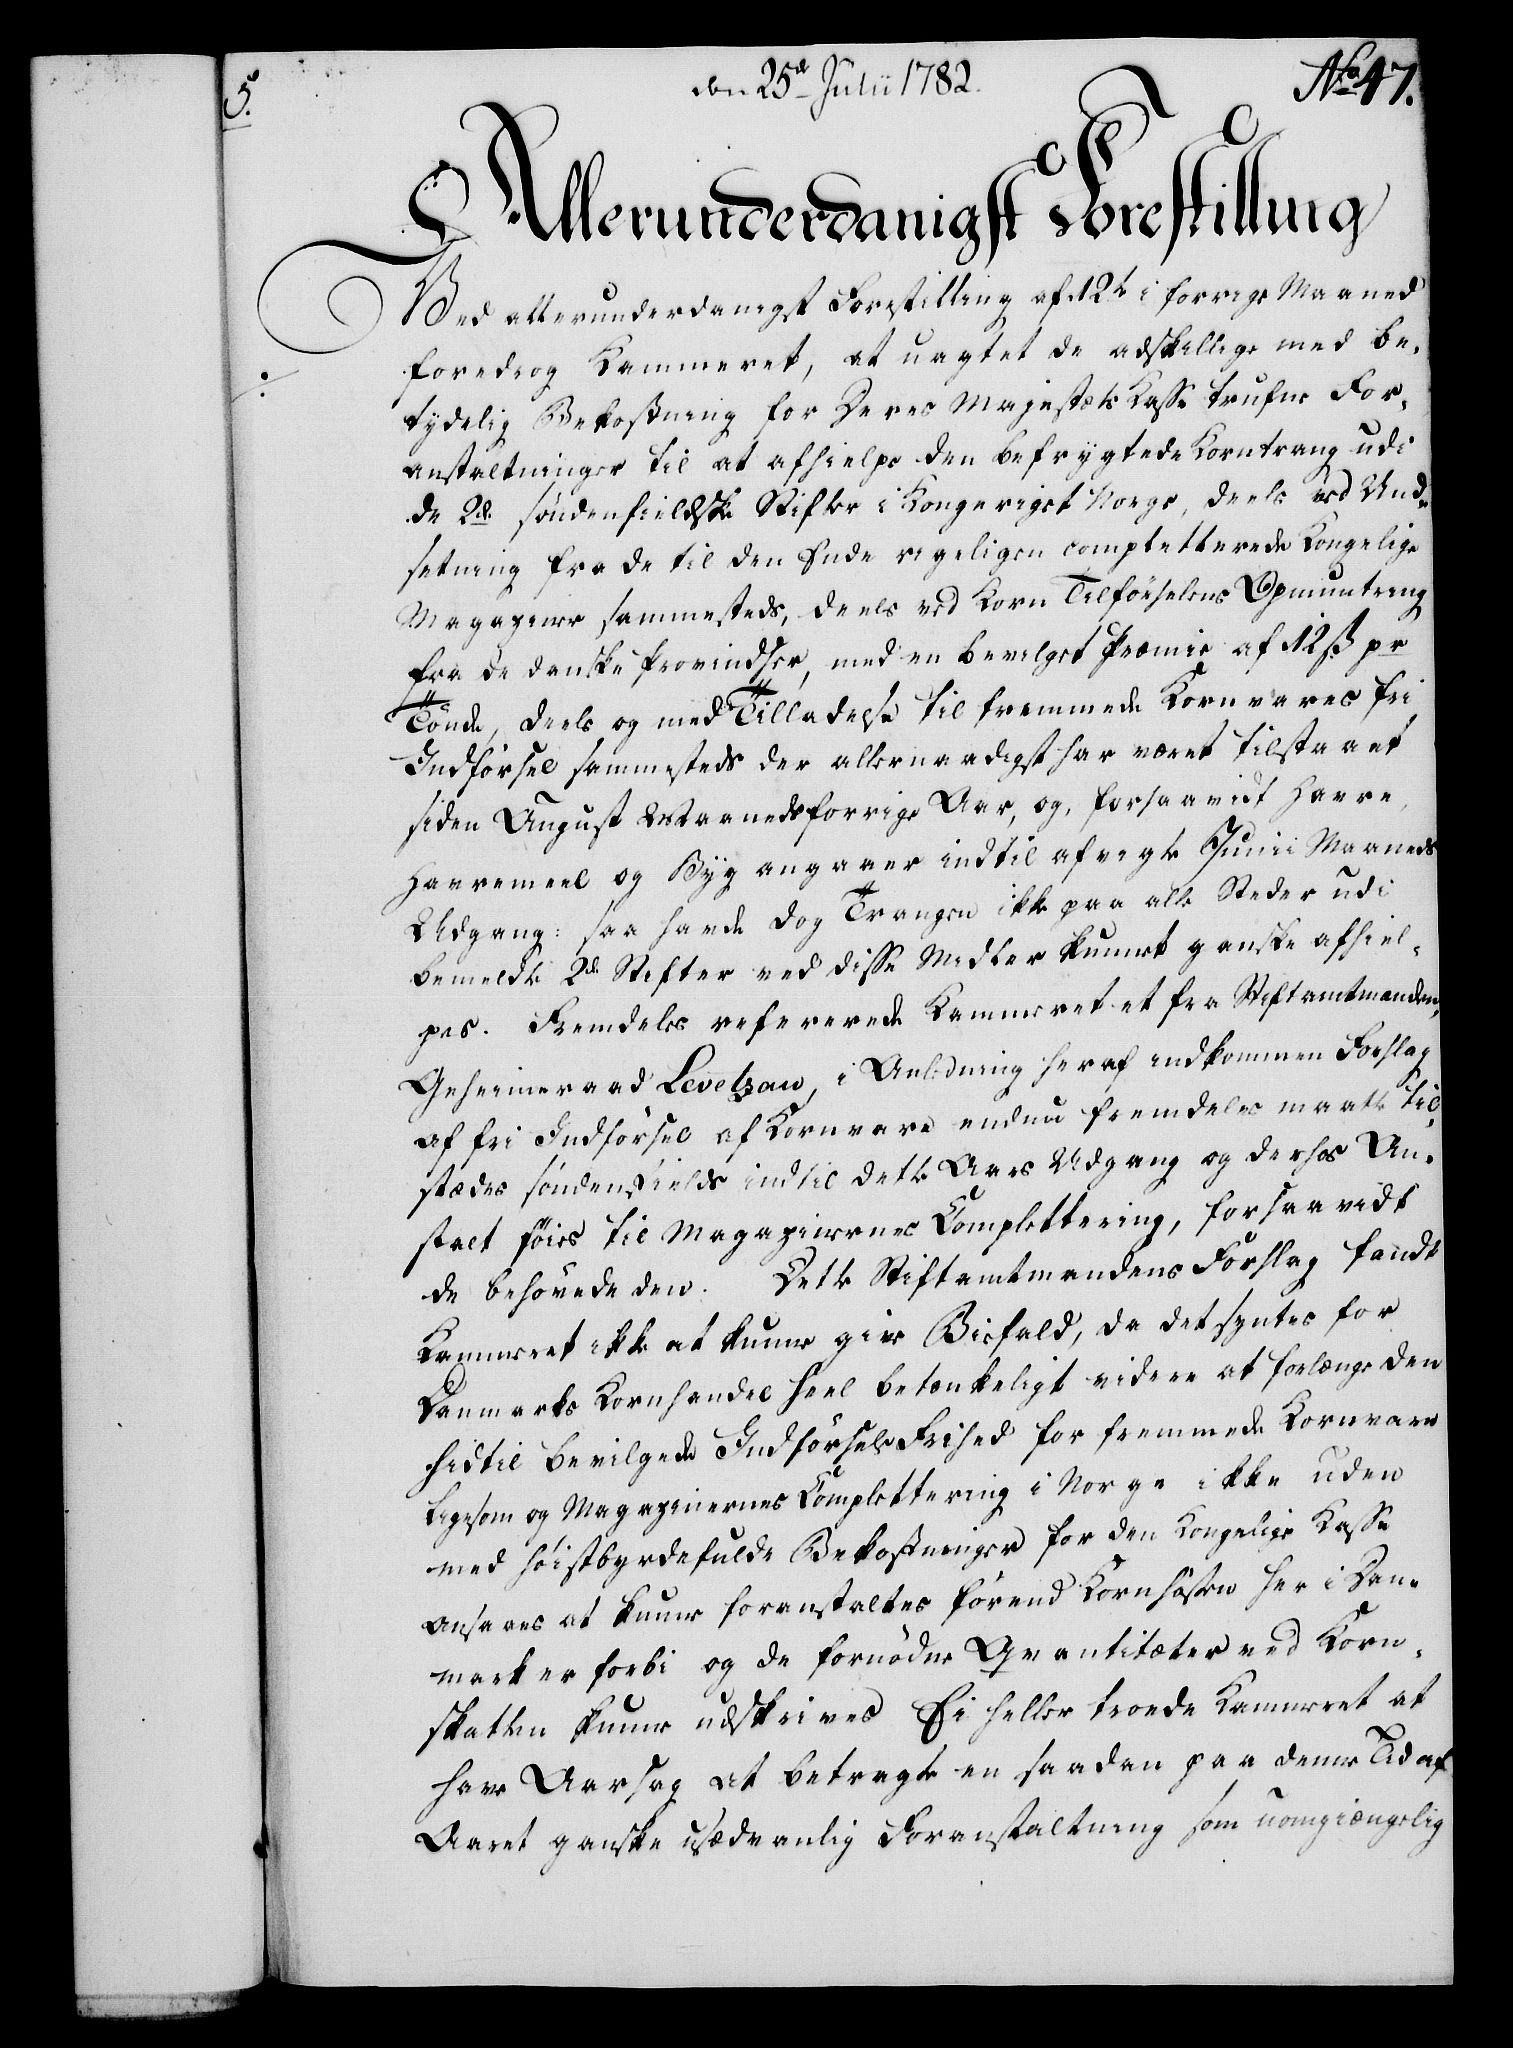 5.
den 25de Julii 1782.
No 47.
Allerunderdanigst Forestilling
Ved allerunderdanigst Forestilling af 12te i forrige Maaned
foredrog Kammeret, at uagtet de adskillige med be-
tydelig Bekostning for Deres Majestæts Kasse trufne For-
anstaltninger til at afhielpe den befrygtede Korntrang udi
de 2de søndenfieldske Stifter i Kongeriget Norge, deels ved Und-
setning fra de til den Ende rigeligen completterede Kongelige
Magaziner sammesteds, deels ved Korn Tilførselens Opmuntring
fra de danske Provindser, med en bevilget Præmie af 12 ß pr
Tönde, deels og med Tilladelse til fremmede Kornvares fri
Indførsel sammesteds der allernaadigst har været tilstaaet
siden August Maaneds forrige Aar, og, forsaavidt Havre,
Havremeel og Byg angaaer indtil afvigte Junii Maaneds
Udgang: saa havde dog Trangen ikke paa alle Steder udi
bemeldte 2de Stifter ved disse Midler kunnet ganske afhiel-
pes. Fremdeles refererede Kammeret et fra Stiftamtmanden,
Geheimeraad Levetzau, i Anledning heraf indkommen Forslag
af fri Indførsel af Kornvare endnu fremdeles maatte til-
stædes søndenfields indtil dette Aars Udgang og derhos An-
stalt föies til Magazinernes Complettering, forsaavidt
de behövede den. Dette Stiftamtmandens Forslag fandt
Kammeret ikke at kunne give Biefald, da det syntes for
Danmarks Kornhandel heel betænkeligt videre at forlænge den
hidtil bevilgede Indførsels Frihed for fremmede Kornvare
ligesom og Magazinernes Complettering i Norge ikke uden
med høistbyrdefulde Bekostninger for den Kongelige Kasse
ansaaes at kunne foranstaltes førend Kornhøsten her i Dan-
mark er forbi og de fornødne Qvantitæter ved Korn-
skatten kunne udskrives Ei heller troede Kammeret at
have Aarsag at betragte en saadan paa denne Tid af
Aaret ganske usædvanlig Foranstaltning som uomgiængelig